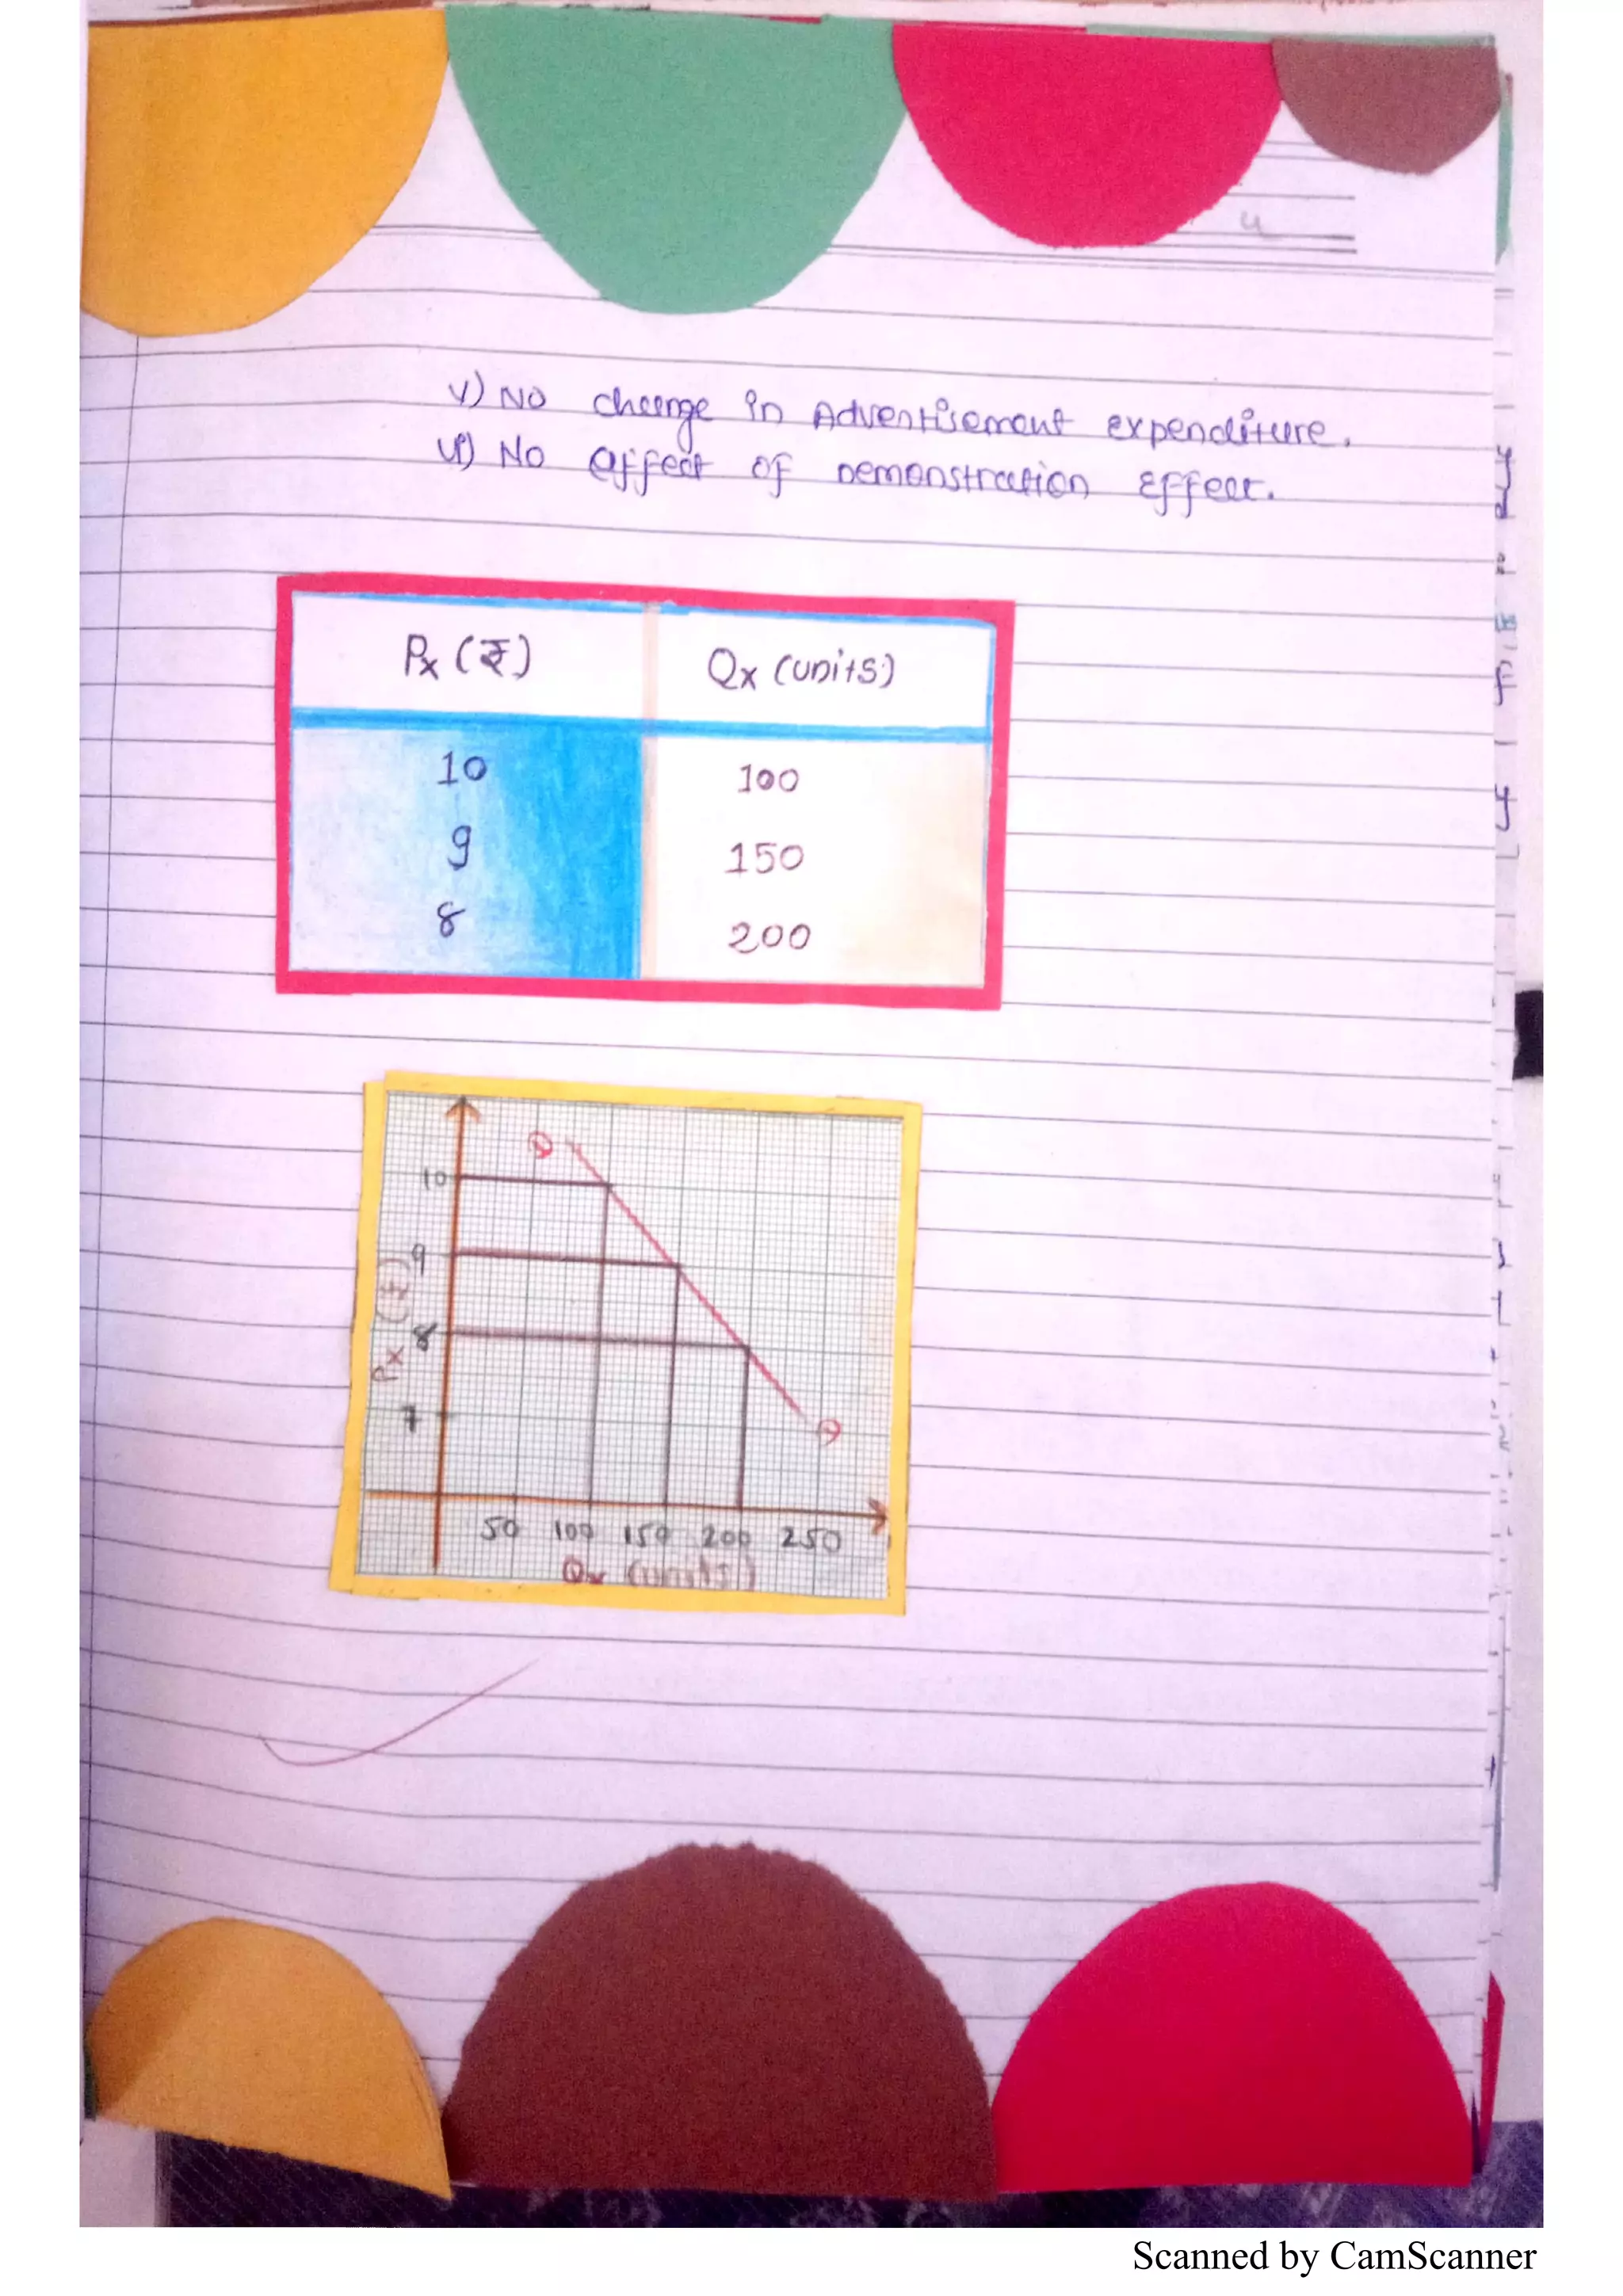 4
v) No change in Advertisement expenditure.
vi) No affect of Demonstration Effect.
Px (₹) Qx (units)
10 100
9 150
8 200
D
10
9
8
7
Px (₹)
D
50 100 150 200 250
Qx (units)
Scanned by CamScanner